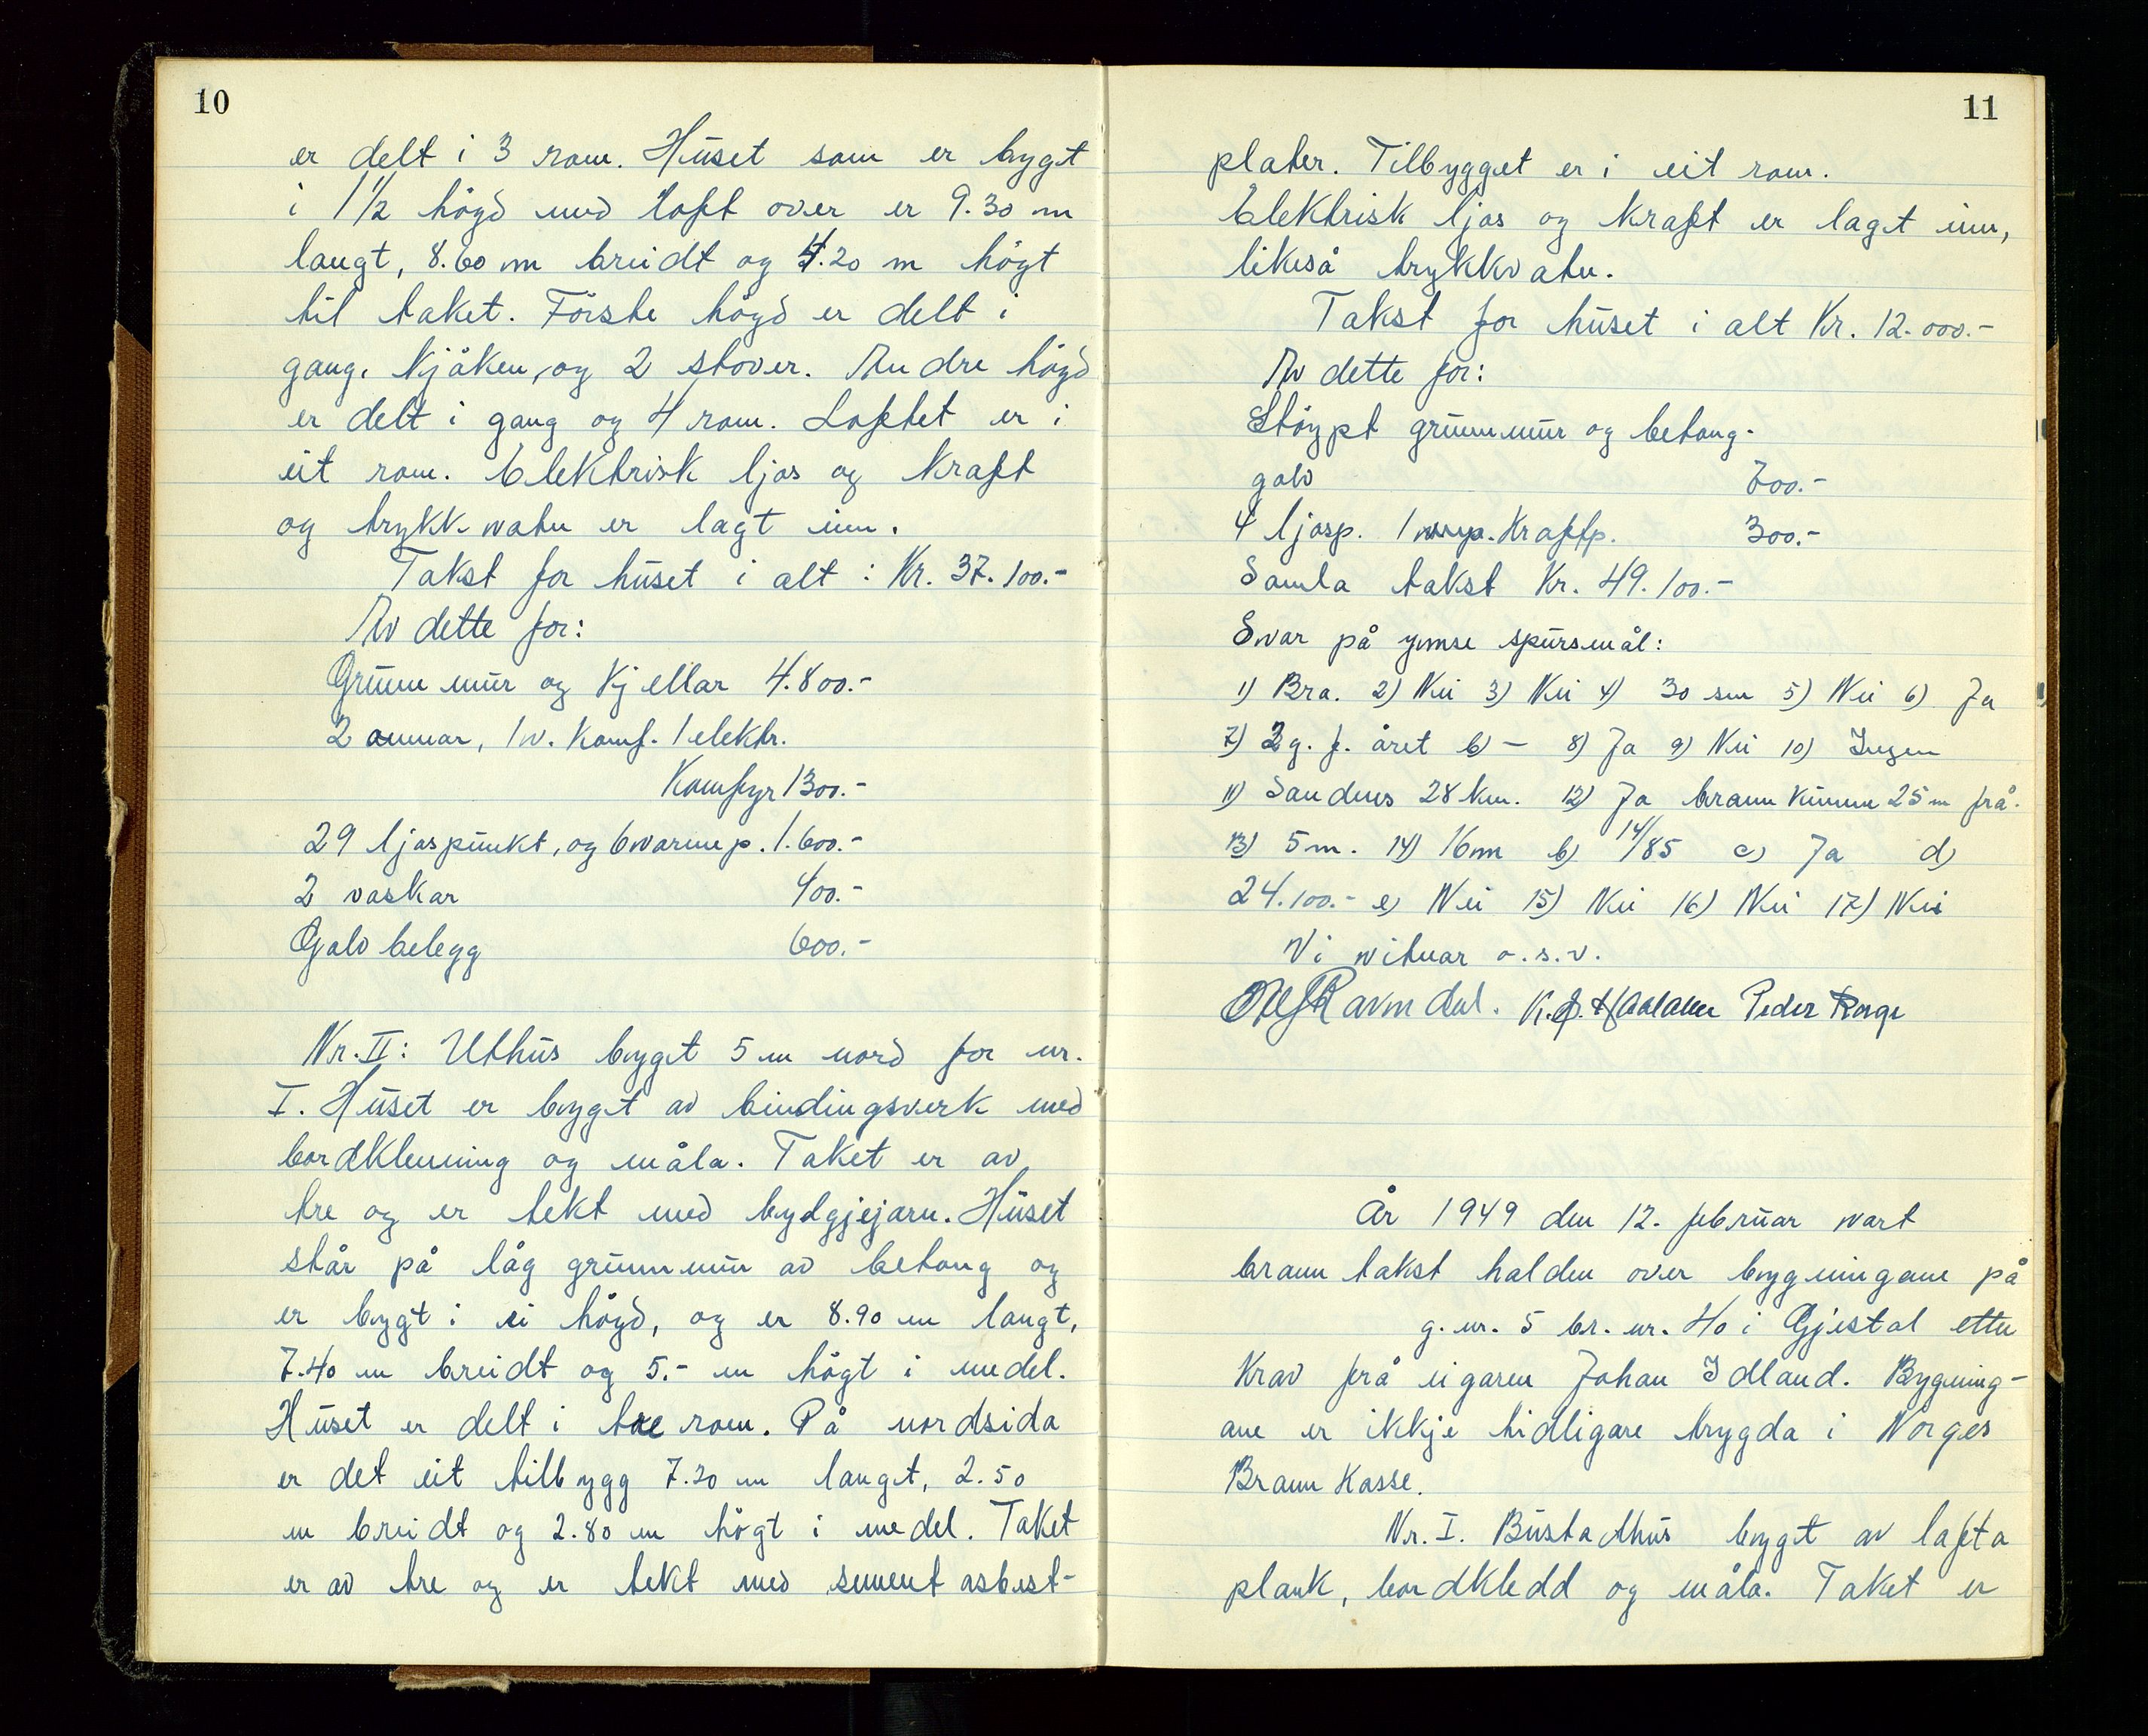 10
er delt i 3 rom. Huset som er bygt
i 1 1/2 högd med loft over er 9.30 m
langt, 8.60 m breidt og 4.20 m högt
til taket. Förste högd er delt i
gang, kjöken, og 2 stover. Andre högd
er delt i gang og 4 rom. Loftet er i
eit rom. Elektrisk ljos og kraft
og trykkvatn er lagt inn.
Takst for huset i alt: Kr. 37.100.-
Av dette for:
Grunnmur og kjellar 4.800.-
2 omnar, 1 v. komf. 1 elektr.
Komfyr 1300.-
29 ljospunkt, og 6 varmep. 1.600.-
2 vaskar 400.-
Golvbelegg 600.-
Nr. II: Uthus bygt 5 m nord for nr.
I. Huset er bygt av bindingsverk med
bordkledning og måla. Taket er av
tre og er tekt med bylgjejarn. Huset
står på låg grunnmur av betong og
er bygt i ei högd, og er 8.90 m langt,
7.40 m breidt og 5.- m högt i medel.
Huset er delt i tre rom. På nordsida
er det eit tilbygg 7.20 m langt, 2.50
m breidt og 2.80 m högt i medel. Taket
er av tre og er tekt med sement asbest-
11
plater. Tilbygget er i eit rom.
Elektrisk ljos og kraft er lagt inn,
likeså trykkvatn.
Takst for huset i alt Kr. 12.000.-
Av dette for:
Stöypt grunnmur og betong-
golv 700.-
4 ljosp. 1 kraftp. 300.-
Samla takst Kr. 49.100.-
Svar på ymse spursmål:
1) Bra. 2) Nei 3) Nei 4) 30 sm 5) Nei 6) Ja
7) 2 g. p. året b) - 8) Ja 9) Nei 10) Ingen
11) Sandnes 28 km. 12) Ja brannkumme 25 m frå.
13) 5 m. 14) 16 m b) 14/85 c) Ja d)
24.100.- e) Nei 15) Nei 16) Nei 17) Nei
Vi vitnar o.s.v.
Ravndal. Peder
År 1949 den 12. februar vart
branntakst halden over bygningane på
g. nr. 5 br. nr. 40 i Gjestal etter
krav frå eigaren Johan Idland. Bygning-
ane er ikkje tidligare trygda i Norges
Brannkasse.
Nr. I. Bustadhus bygt av lafta
plank, bordkledd og måla. Taket er